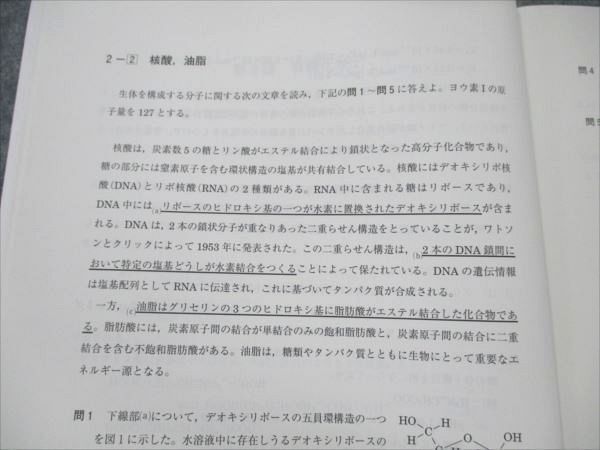 2－2 核酸，油脂
生体を構成する分子に関する次の文章を読み，下記の問1～問5に答えよ。ヨウ素Iの原
子量を127とする。
核酸は，炭素数5の糖とリン酸がエステル結合により鎖状となった高分子化合物であり，
糖の部分には窒素原子を含む環状構造の塩基が共有結合している。核酸にはデオキシリボ核
酸(DNA)とリボ核酸(RNA)の2種類がある。RNA中に含まれる糖はリボースであり，
DNA中には(a)リボースのヒドロキシ基の一つが水素に置換されたデオキシリボースが含ま
れる。DNAは，2本の鎖状分子が重なりあった二重らせん構造をとっていることが，ワトソ
ンとクリックによって1953年に発表された。この二重らせん構造は，(b)2本のDNA鎖間に
おいて特定の塩基どうしが水素結合をつくることによって保たれている。DNAの遺伝情報
は塩基配列としてRNAに伝達され，これに基づいてタンパク質が合成される。
一方，(c)油脂はグリセリンの3つのヒドロキシ基に脂肪酸がエステル結合した化合物であ
る。脂肪酸には，炭素原子間の結合が単結合のみの飽和脂肪酸と，炭素原子間の結合に二重
結合を含む不飽和脂肪酸がある。油脂は，糖類やタンパク質とともに生物にとって重要なエ
ネルギー源となる。
問1 下線部(a)について，デオキシリボースの五員環構造の一つ
を図1に示した。水溶液中に存在しうるデオキシリボースの
HO H
C O OH
H
問4
問5